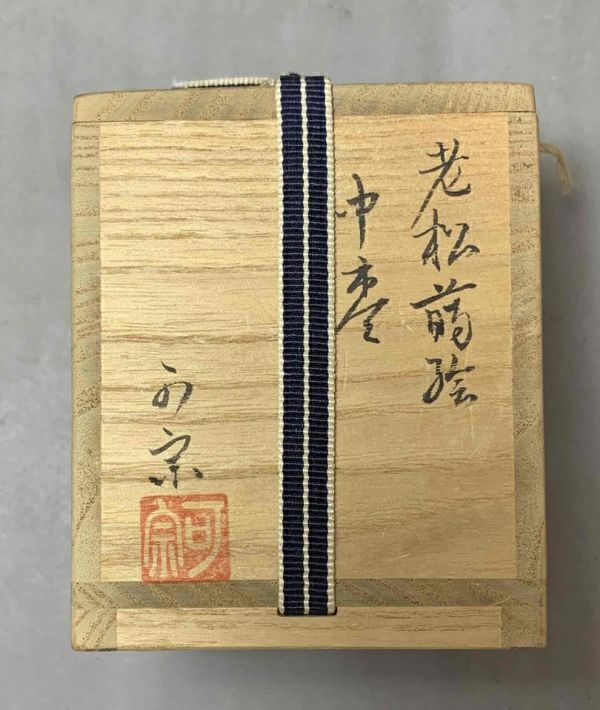 老松蒔絵
中棗
可宗
可宗